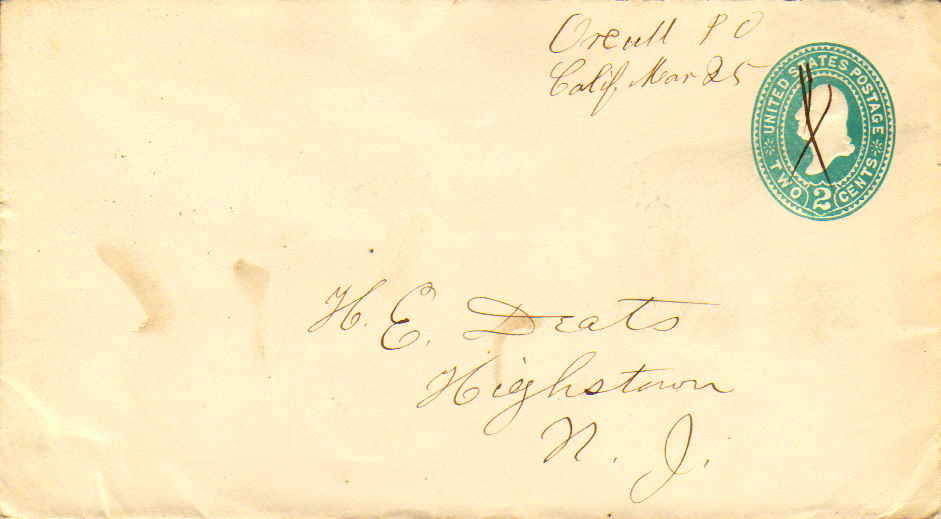 Orcutt P O
Calif, Mar 25
UNITED STATES POSTAGE
TWO 2 CENTS
H. E. Deats
Highstown
N. J.